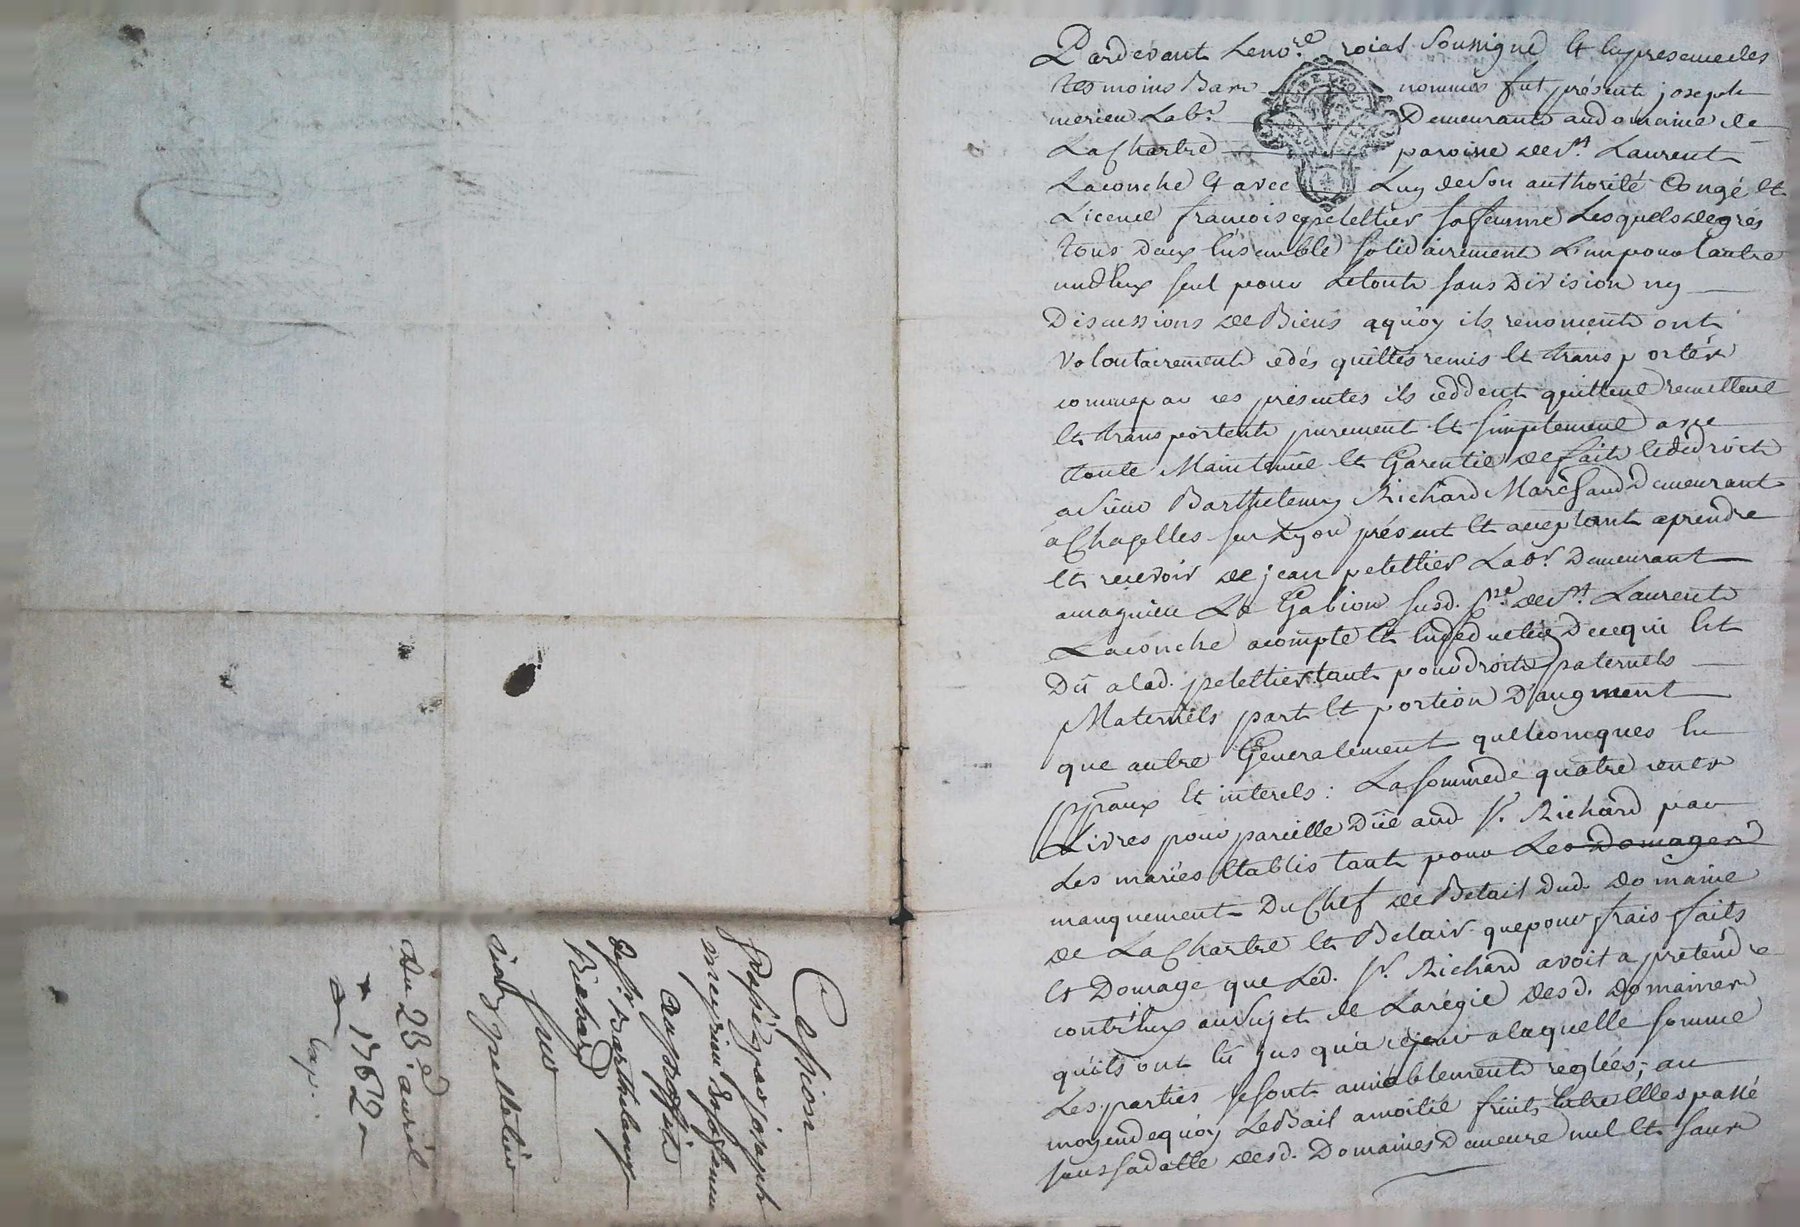 Pardevant Le no.re roial Soussigné Et En presence des
Tesmoins Bas nommés fut présent joseph
merieu Lab.r Demeurant au domaine de
La Chartre paroisse de St. Laurent
Laconche Et avec Luy de Son authorité Congé Et
Licence francoise peleltier Sa femme Lesquels de grés
tous Deux Ensemble solidairement L'un pour L'autre
un d'Eux seul pour Le tout sans Division ny
Discussions de Biens a quoy ils renoncent ont
volontairement cedés quittés remis Et transportés
comme par ces présentes ils cèddent quittent remettent
Et transportent purement Et simplement avec
toute Maintenüe Et Garentie de fait Et de droit
a Sieur Barthelemy Richard Marchand Demeurant
a Chazelles sur Lyon présent Et acceptant a prendre
Et recevoir de jean peleltier Lab.r Demeurant
a magnieu Le Gabion susd. p.sse de St. Laurent
Laconche a compte Et En deduction De ce qui Est
Dû a lad. peleltier tant pour droits paternels
Maternels part Et portion D'augment
que autre Generalement quelconques En
ppaux Et interets : La somme de quatre cents
Livres pour pareille Düe aud. Sr. Richard par
Les mariés Etablis tant pour Les Domages
manquement Du Chef de Betail Dud. Domaine
de La Chartre Et Belair que pour frais faits
Et Domage que Led. Sr. Richard avoit a pretendre
contr'Eux au Sujet de La régie desd. Domaines
qu'ils ont Eü jusqu'a ce jour a laquelle somme
Les parties se sont amiablement reglées; au
moyen de quoy Le Bail a moitié fruits Entre Elles passé
sous sa datte desd. Domaines Demeure nul Et sans
Cession
passée par joseph
meyrieu Et sa femme
au proffit
de sr. Barthelemy
Richard
Sur
jean pelletier
Du 23e. avril
1782